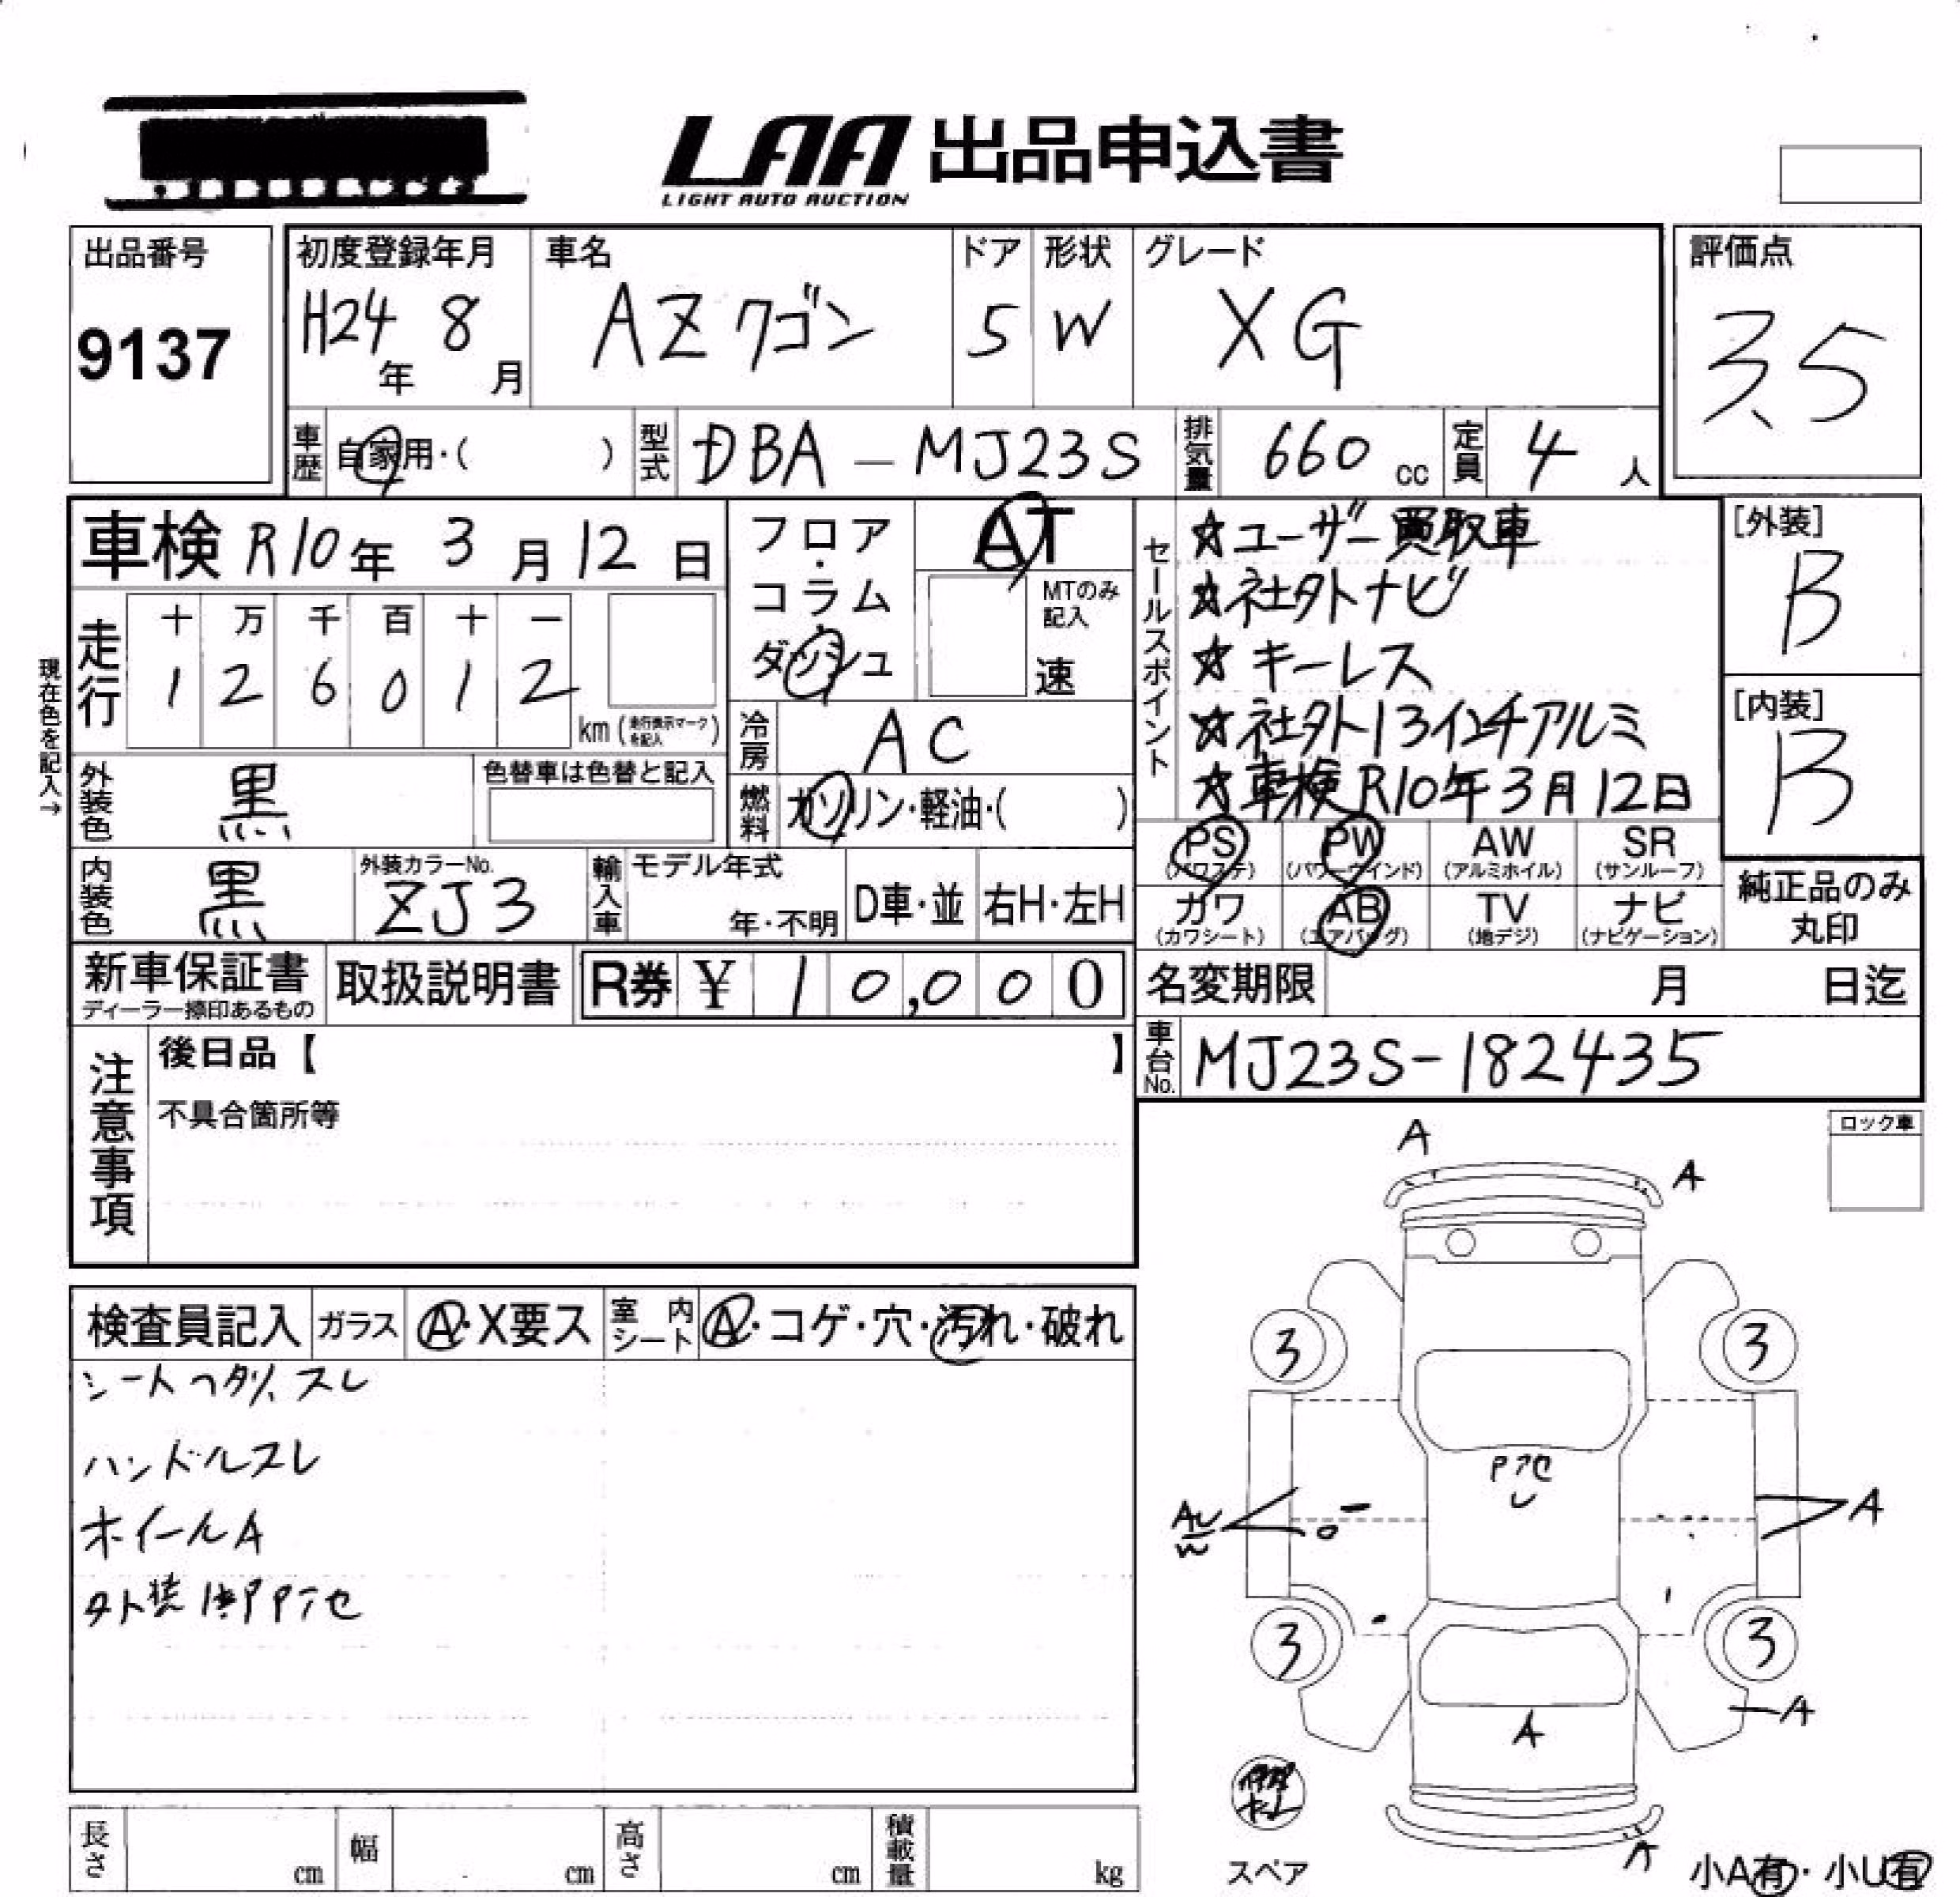 LAA 出品申込書
LIGHT AUTO AUCTION
出品番号
9137
初度登録年月
H24年 8月
車名
AZワゴン
ドア
5
形状
W
グレード
XG
評価点
3.5
車歴 自家用・( )
型式 DBA-MJ23S
排気量 660 cc
定員 4 人
車検 R10年 3月12日
現在色を記入→
走行
十 万 千 百 十 一
1 2 6 0 1 2
km (走行表示マークを記入)
フロア・コラム・ダッシュ
AT
MTのみ記入
速
冷房 AC
燃料 ガソリン・軽油・( )
外装色 黒
色替車は色替と記入
内装色 黒
外装カラーNo.
ZJ3
輸入車
モデル年式
年・不明
D車・並
右H・左H
セールスポイント
☆ユーザー買取車
☆社外ナビ
☆キーレス
☆社外13インチアルミ
☆車検R10年3月12日
[外装]
B
[内装]
B
PS (パワステ)
PW (パワーウインド)
AW (アルミホイル)
SR (サンルーフ)
カワ (カワシート)
AB (エアバッグ)
TV (地デジ)
ナビ (ナビゲーション)
純正品のみ丸印
新車保証書
ディーラー捺印あるもの
取扱説明書
R券 ¥ 10,000
名変期限 月 日迄
車台No. MJ23S-182435
注意事項
後日品【 】
不具合箇所等
ロック車
検査員記入
ガラス A・X要ス
室内シート A・コゲ・穴・汚れ・破れ
シートヘタリ、スレ
ハンドルスレ
ホイールA
A
A
3
3
U
AU
W
A
3
3
A
A
A
スペア
小A有・小U有
長さ cm
幅 cm
高さ cm
積載量 kg